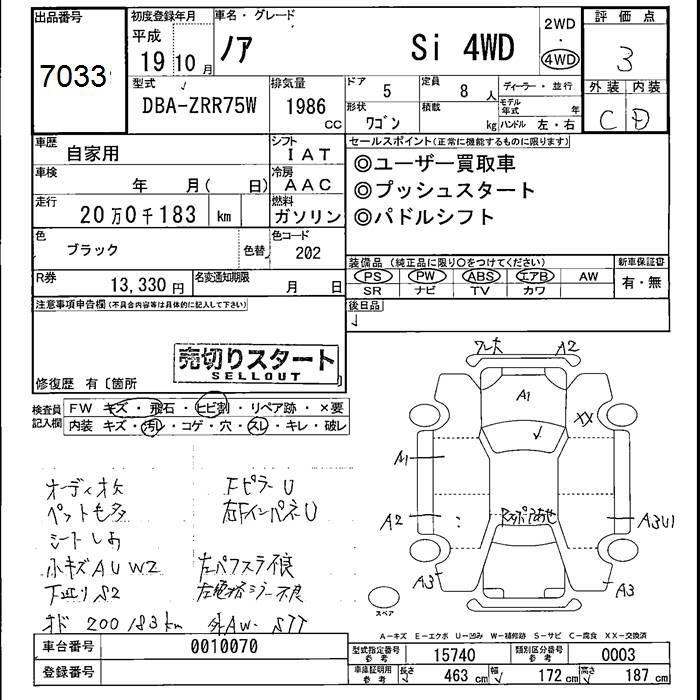 出品番号 初度登録年月 車名・グレード 2WD 評価点
7033 平成 19 10月 ノア Si 4WD ・ 4WD 3
型式 排気量 ドア 定員 ディーラー・並行 外装 内装
DBA-ZRR75W 1986 CC 5 8人 モデル年式 年 C D
形状 ワゴン 積載 kg ハンドル 左・右
車歴 自家用 シフト IAT セールスポイント(正常に機能するものに限ります)
車検 年 月( 日) 冷房 AAC ◎ユーザー買取車
走行 20万0千183 km 燃料 ガソリン ◎プッシュスタート
◎パドルシフト
色 ブラック 色替 色コード 202
装備品(純正品に限り○をつけてください) 新車保証書
R券 13,330円 名変通知期限 月 日 PS PW ABS エアB AW 有・無
SR ナビ TV カワ
注意事項申告欄(不具合内容等は具体的に記入して下さい) 後日品
売切りスタート
SELLOUT
修復歴 有〔箇所
検査員記入欄 FW キズ・飛石・ヒビ割・リペア跡・×要
内装 キズ・汚レ・コゲ・穴・スレ・キレ・破レ
A2
A1
XX
A1
A2
A3U1
A3
A3
スペア
オーディオ欠 FピラーU
右FインパネU
小キズAUW2
下廻りS2
200183km
A-キズ E-エクボ U-凹み W-補修跡 S-サビ C-腐食 XX-交換済
車台番号 0010070 型式指定番号 参考 15740 類別区分番号 参考 0003
登録番号 車庫証明用 参考 長さ 463cm 幅 172cm 高さ 187cm